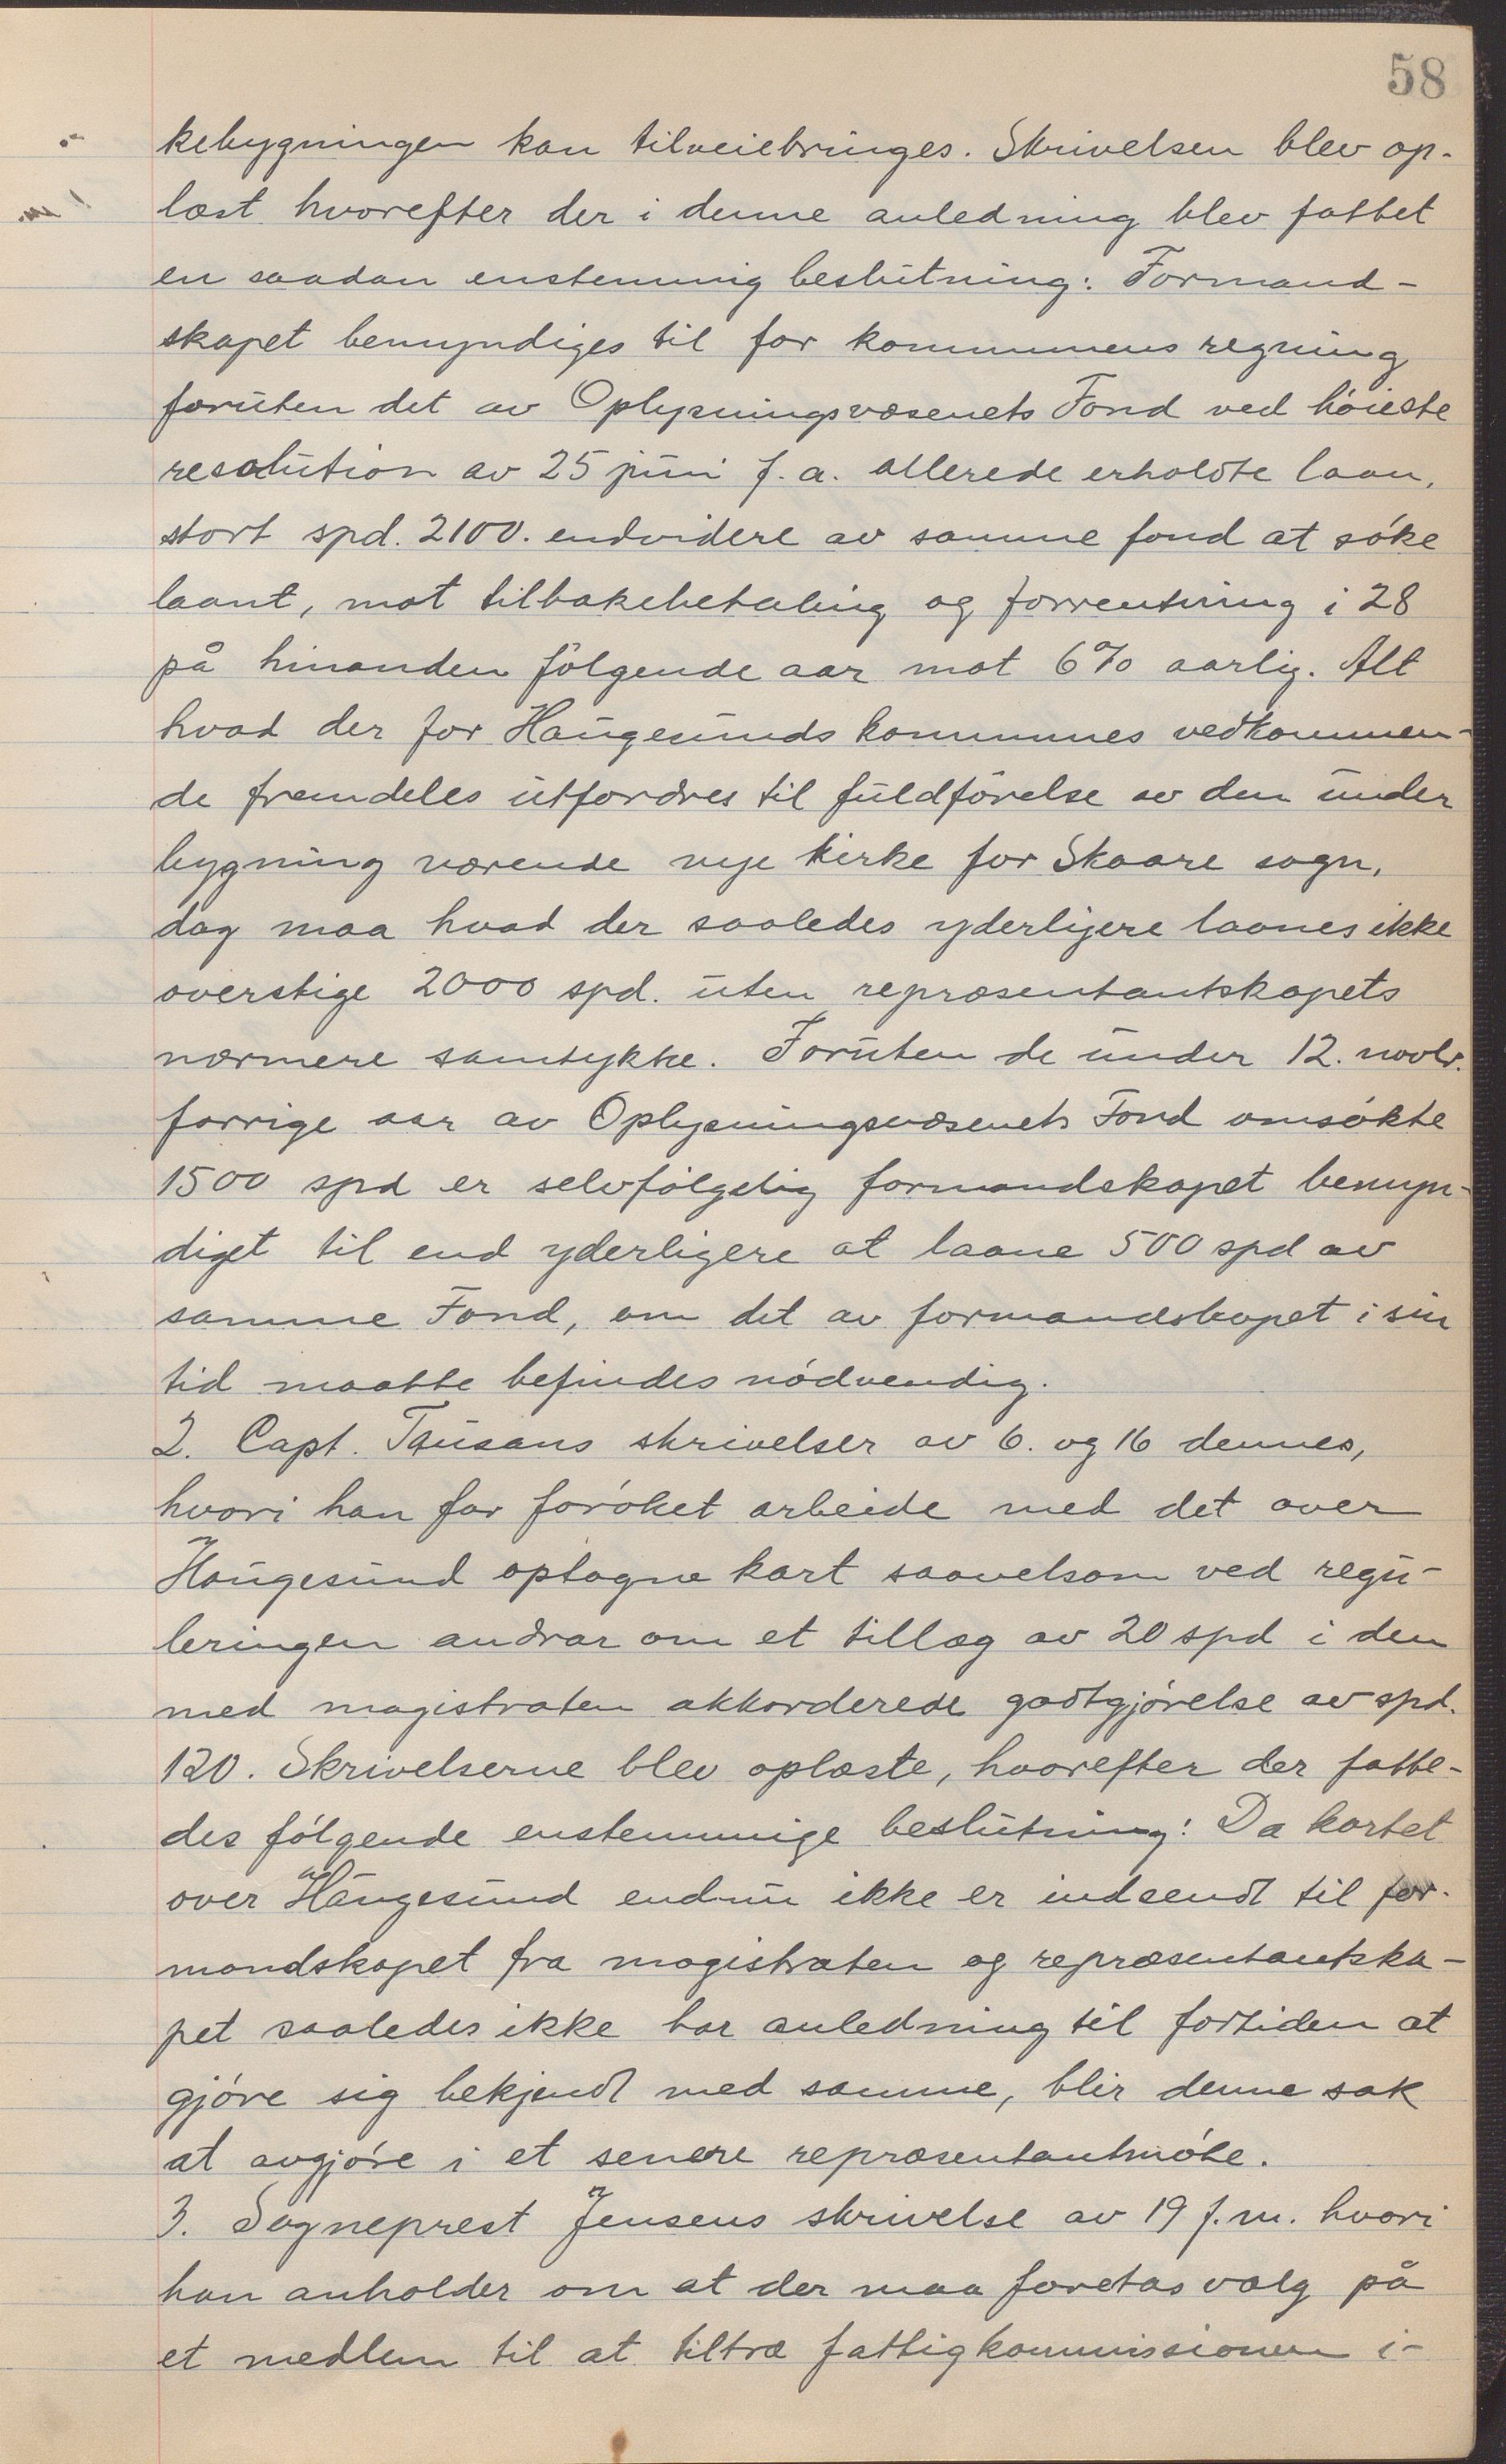 58
kebygningen kan tilveiebringes. Skrivelsen blev op-
læst hvorefter der i denne anledning blev fattet
en saadan enstemmig beslutning: Formand-
skapet bemyndiges til for kommunens regning
foruten det av Oplysningsvæsenets Fond ved høieste
resolution av 25 juni f. a. allerede erholdte laan,
stort spd. 2100. endvidere av samme fond at søke
laant, mot tilbakebetaling og forrentning i 28
på hinanden følgende aar mot 6% aarlig. Alt
hvad der for Haugesunds kommunes vedkommen-
de fremdeles utfordres til fuldførelse av den under
bygning værende nye kirke for Skaare sogn,
dog maa hvad der saaledes yderligere laanes ikke
overstige 2000 spd. uten repræsentantskapets
nærmere samtykke. Foruten de under 12. novbr.
forrige aar av Oplysningsvæsenets Fond omsøkte
1500 spd er selvfølgelig formandskapet bemyn-
diget til end yderligere at laane 500 spd av
samme Fond, om det av formandskapet i sin
tid maatte befindes nødvendig.
2. Capt. Tausans skrivelser av 6. og 16 dennes,
hvori han for forøket arbeide med det over
Haugesund optagne kart saavelsom ved regu-
leringen andrar om et tillæg av 20 spd i den
med magistraten akkorderede godtgjørelse av spd.
120. Skrivelserne blev oplæste, hvorefter der fatte-
des følgende enstemmige beslutning: Da kartet
over Haugesund endnu ikke er indsendt til for-
mandskapet fra magistraten og repræsentantska-
pet saaledes ikke har anledning til fortiden at
gjøre sig bekjendt med samme, blir denne sak
at avgjøre i et senere repræsentantmøte.
3. Sogneprest Jensens skrivelse av 19 f. m. hvori
han anholder om at der maa foretas valg på
et medlem til at tiltræ fattigkommissionen i-